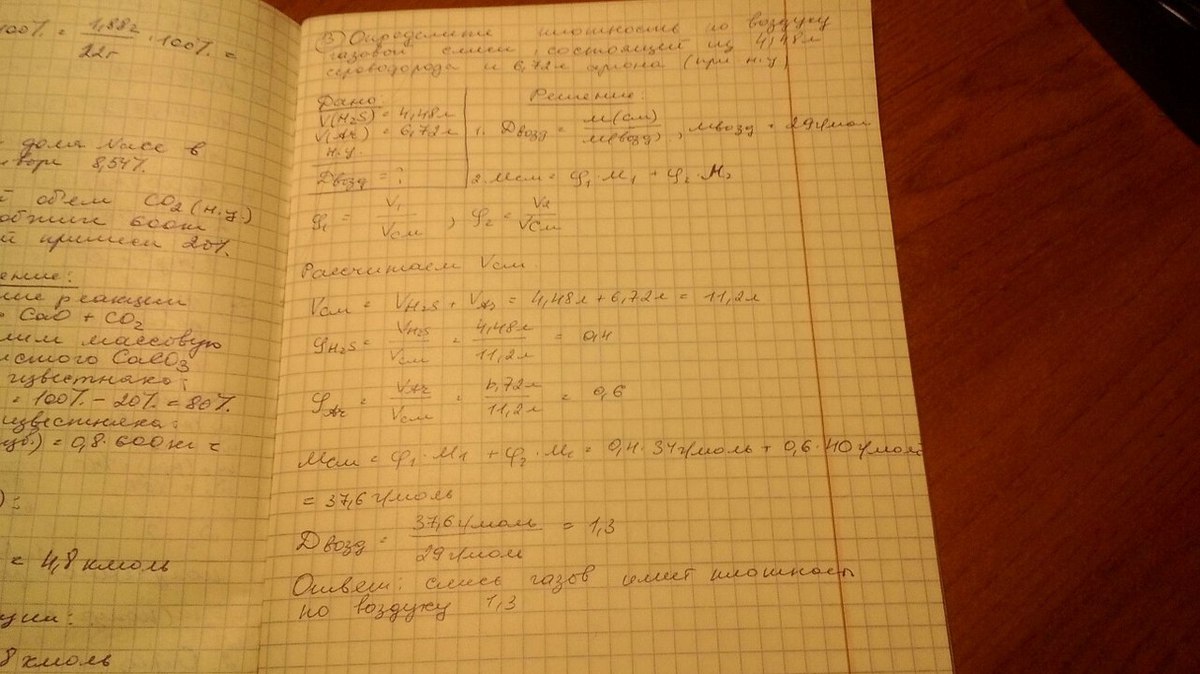 100% = 1,88г / 22г · 100% =
доля Vасс в
8,54%
объем CO2 (н.у.)
600кг
примеси 20%.
реакции
CaO + CO2
массовую
CaCO3
известняка:
= 100% - 20% = 80%
известняка:
= 0,8·600кг =
= 4,8 кмоль
8 кмоль
3) Определите плотность по воздуху
газовой смеси, состоящей из 4,48л
сероводорода и 6,72л аргона (при н.у)
Дано:
V(H2S) = 4,48л
V(Ar) = 6,72л
н.у.
Dвозд = ?
Решение:
1. Dвозд = M(см) / M(возд), Mвозд = 29г/мол
2. Mсм = φ1·M1 + φ2·M2
φ1 = V1 / Vсм, φ2 = V2 / Vсм
Рассчитаем Vсм.
Vсм = VH2S + VAr = 4,48л + 6,72л = 11,2л
φH2S = VH2S / Vсм = 4,48л / 11,2л = 0,4
φAr = VAr / Vсм = 6,72л / 11,2л = 0,6
Mсм = φ1·M1 + φ2·M2 = 0,4·34г/моль + 0,6·40г/моль
= 37,6г/моль
Dвозд = 37,6г/моль / 29г/мол = 1,3
Ответ: смесь газов имеет плотность
по воздуху 1,3